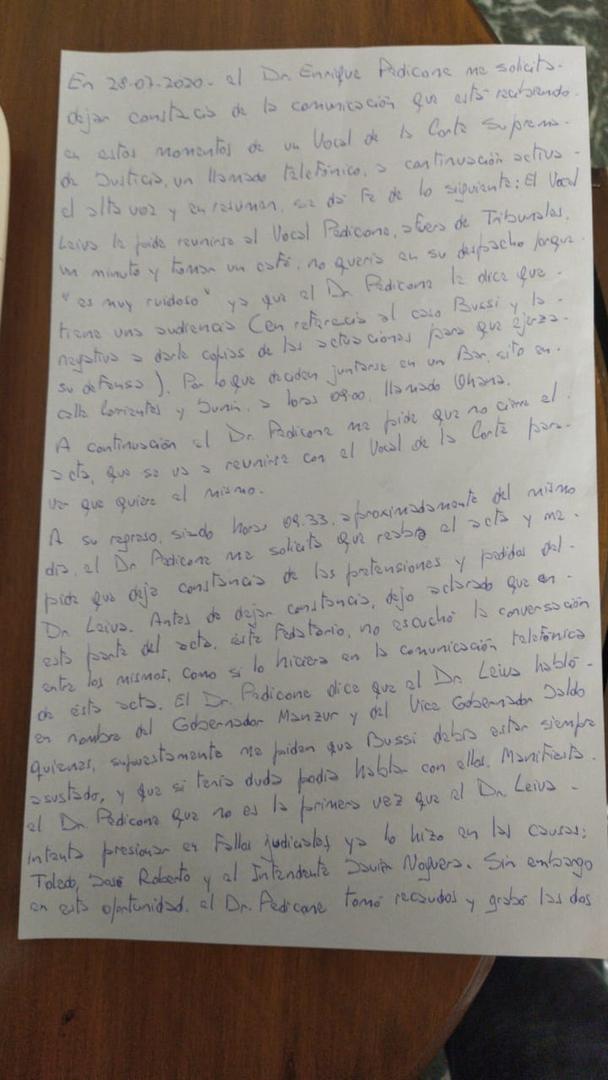 En 28-07-2020- el Dr. Enrique Pedicone me solicita-
dejar constacia de la comunicación que está recibiendo-
en estos momentos de un Vocal de la Corte Suprema-
de Justicia, un llamado telefónico, a continuación activa-
el alta voz y en resumen, se da fe de lo siguiente: El Vocal
Leiva le pide reunirse al Vocal Pedicone, afuera de Tribunales,
un minuto y tomar un café, no quería en su despacho porque-
"es muy ruidoso" ya que el Dr. Pedicone le dice que-
tiene una audiencia (en referecia al caso Bussi y la-
negativa a darle copias de las actuaciones para que ejerza-
su defensa). Por lo que deciden juntarse en un Bar, sito en-
calle Corrientes y Junín, a horas 09:00, llamado Ohana.
A continuación el Dr. Pedicone me pide que no cierre el-
acta, que se va a reunirse con el Vocal de la Corte para-
ver que quiere el mismo.
A su regreso, siendo horas 09.33, aproximadamente del mismo
día, el Dr. Pedicone me solicita que reabra el acta y me-
pide que deje constancia de las pretensiones y pedidos del-
Dr. Leiva. Antes de dejar constancia, dejo aclarado que en-
esta parte del acta, éste Fedatario, no escuchó la conversación
entre los mismos, como si lo hiciera en la comunicación telefónica
de ésta acta. El Dr. Pedicone dice que el Dr. Leiva habló-
en nombre del Gobernador Manzur y del Vice Gobernador Jaldo
quienes, supuestamente me piden que Bussi debía estar siempre
asustado, y que si tenía duda podía hablar con ellos. Manifiesta-
el Dr. Pedicone que no es la primera vez que el Dr. Leiva-
intenta presionar en Fallos judiciales, ya lo hizo en las causas:
Toledo, José Roberto y al Intendente Javier Noguera. Sin embargo
en esta oportunidad, el Dr. Pedicone tomó recaudos y grabó las dos